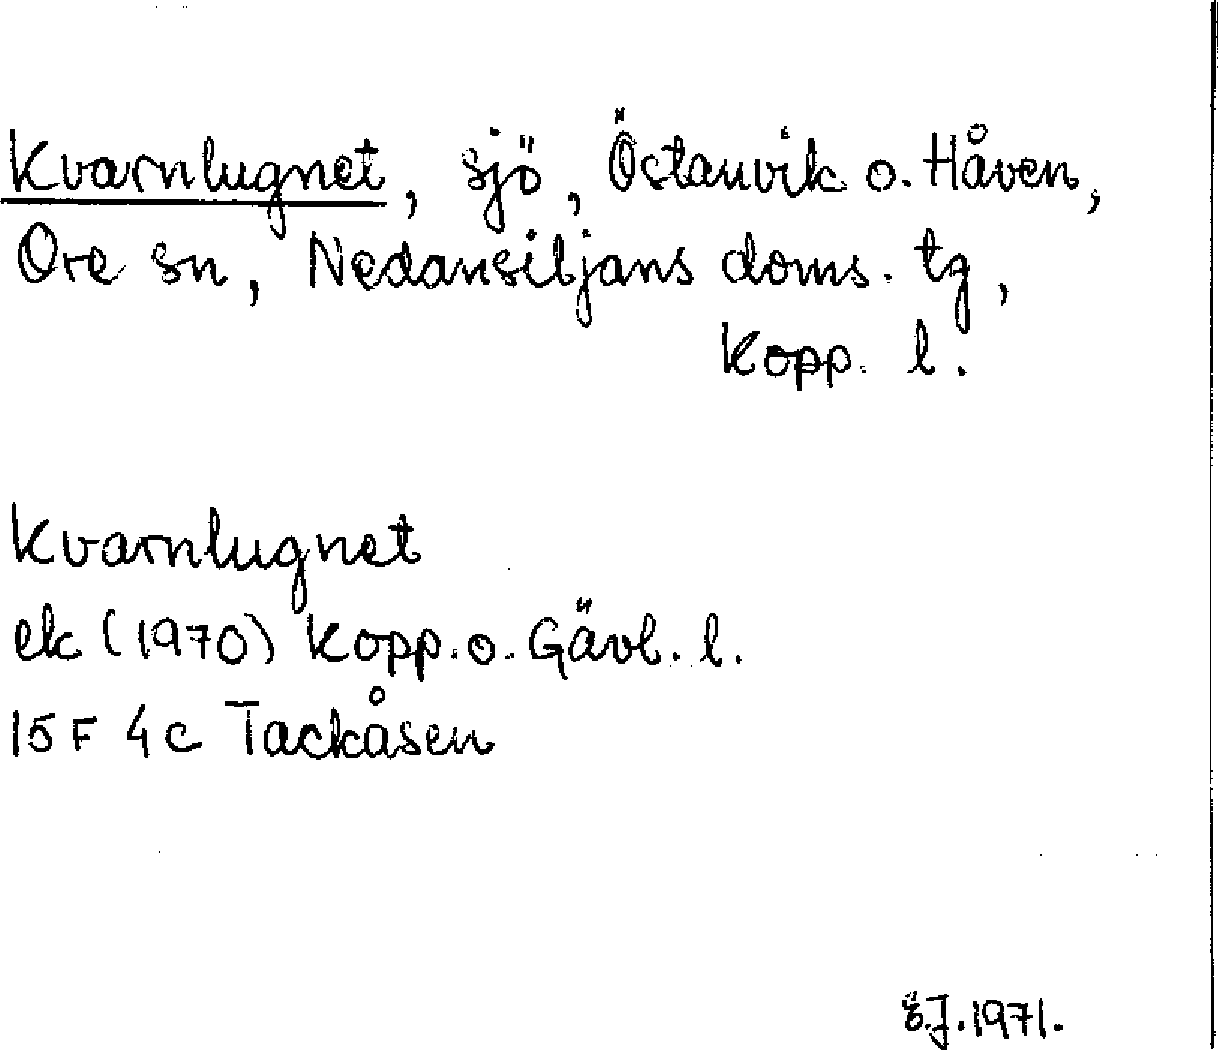 Kvarnlugnet, sjö, Östanvik o. Håven,
Ore sn, Nedansiljans doms. tg,
Kopp. l.
Kvarnlugnet
ek (1970) Kopp. o. Gävl. l.
15F 4c Tackåsen
1971.